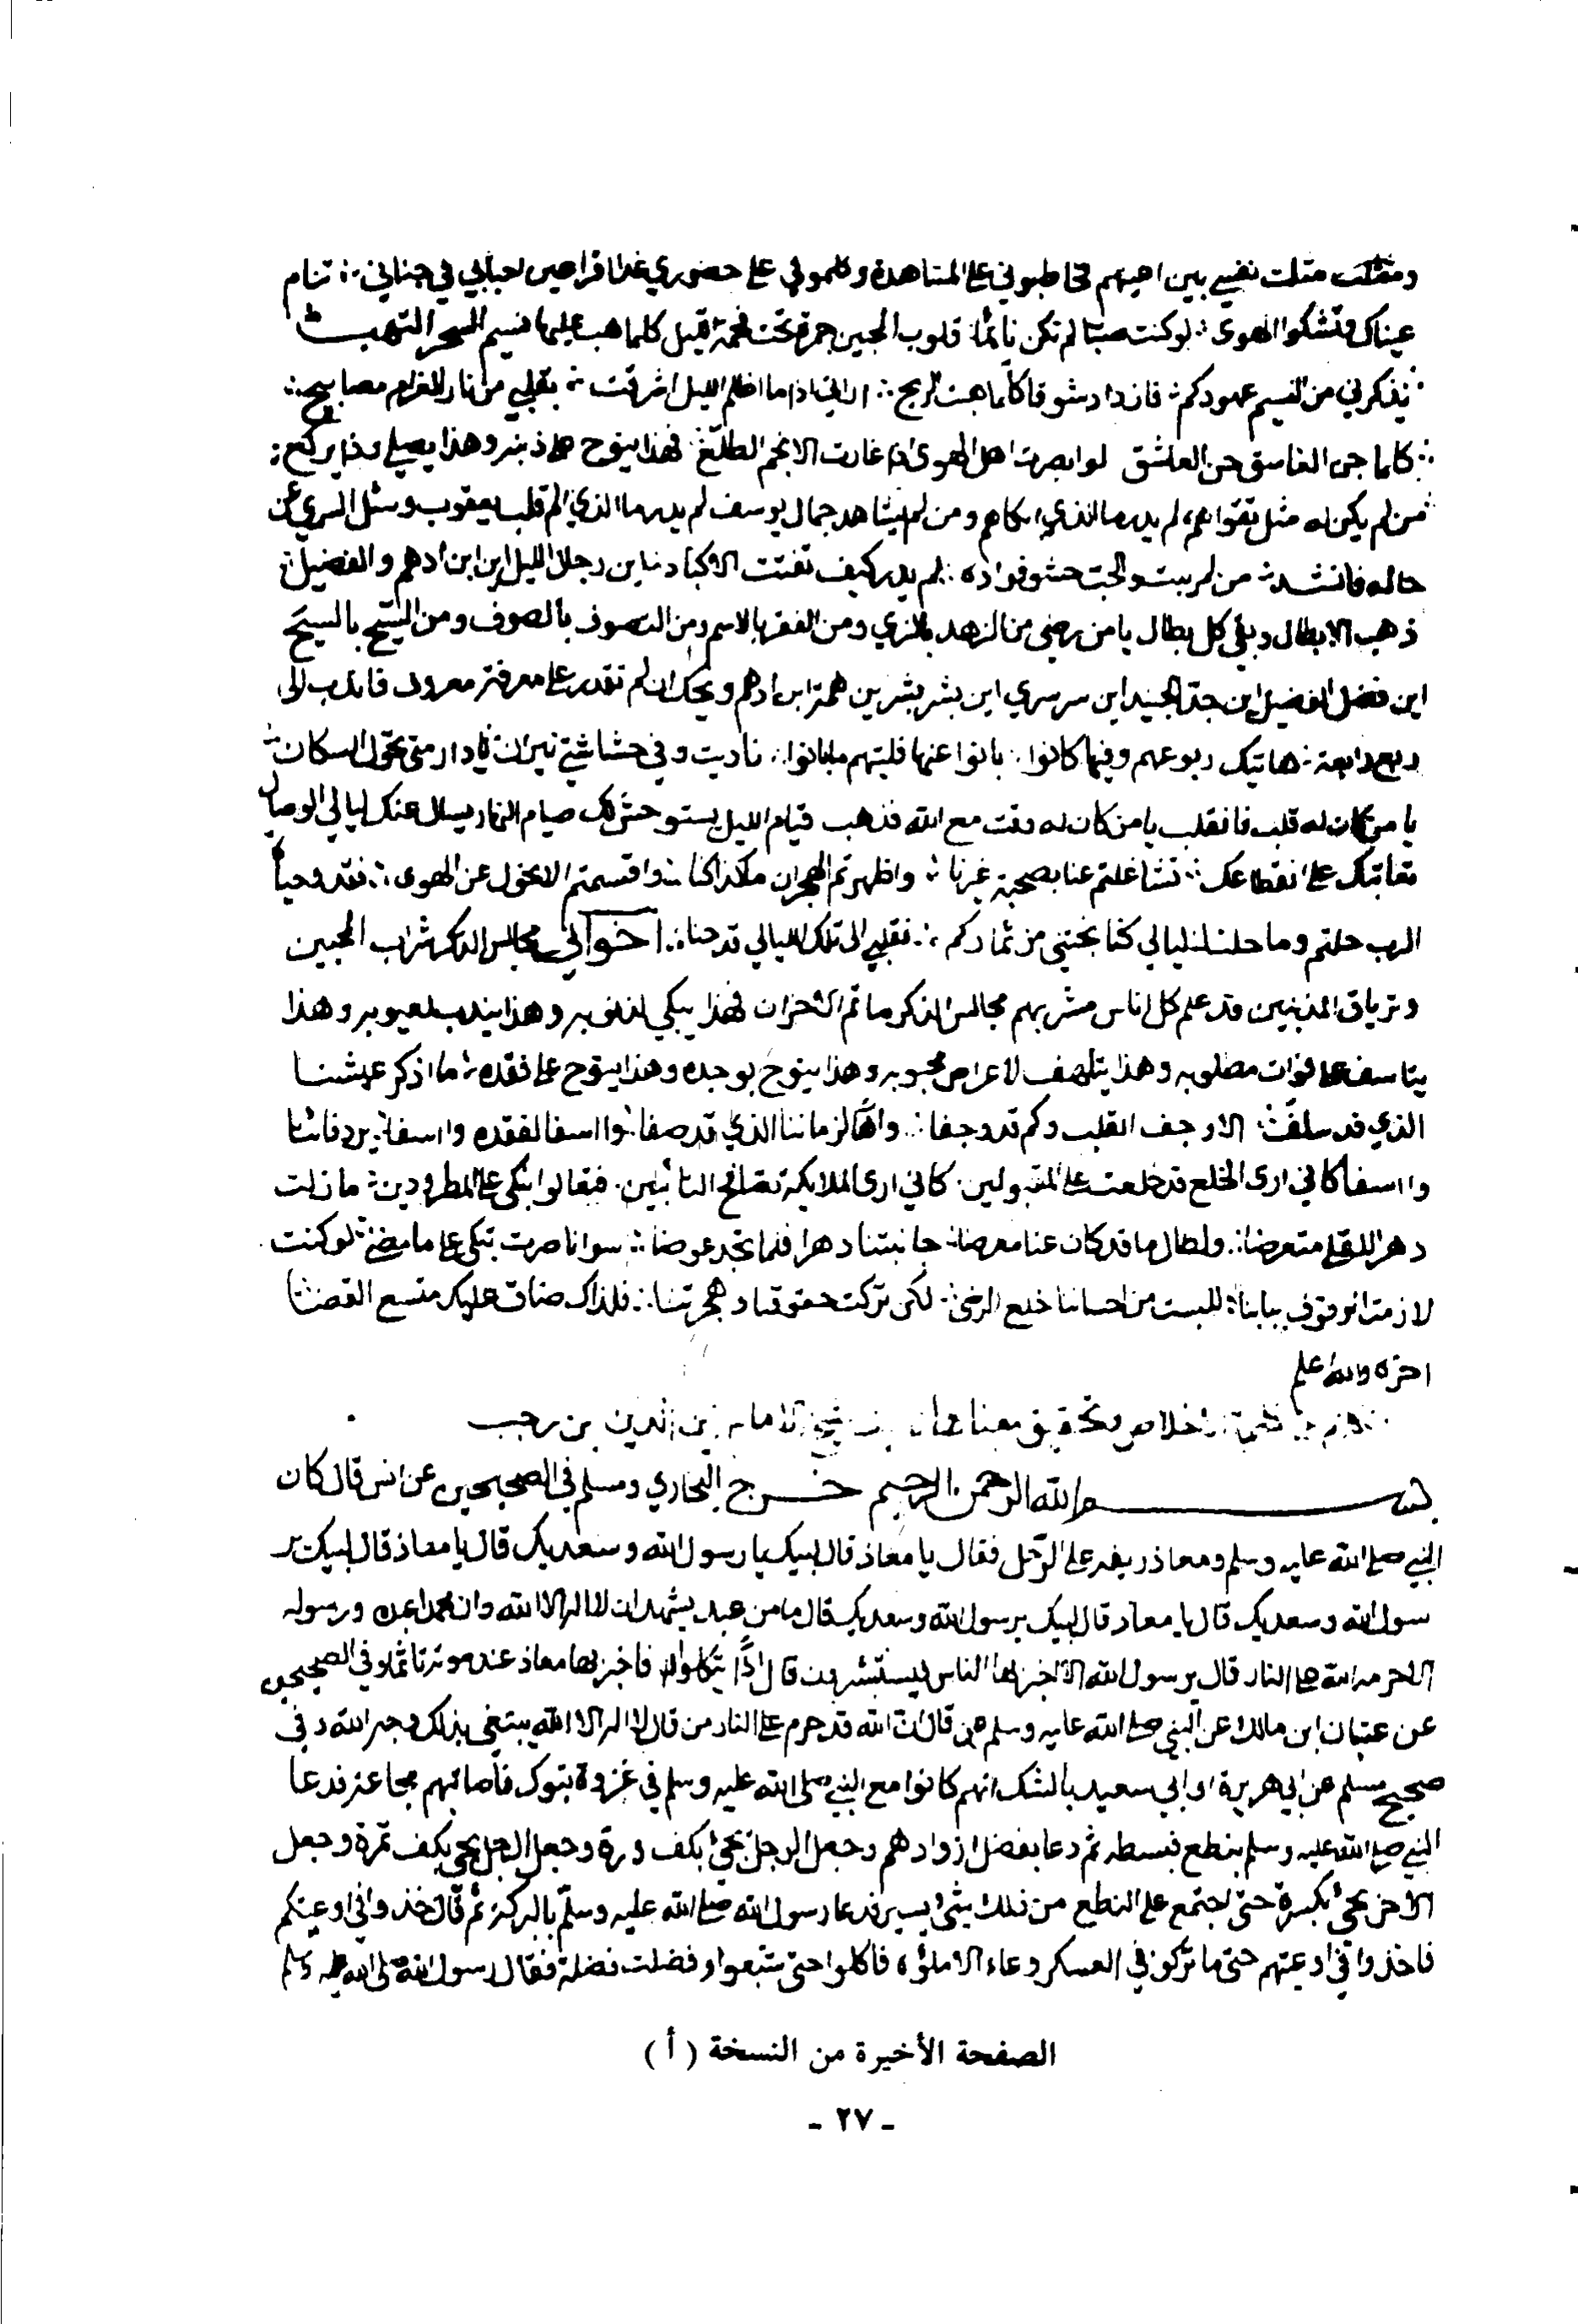 ومثلت مثلت نفسي بين اعينهم فخاطبوني على المشاهدة وكلموني على حضوري غدا اقر اعين احبابي في جناني ∴ تنام
عيناك وتشكوا الهوى ∴ لوكنت صبا لم تكن نائما ∴ قلوب المحبين جمرة تحت فحمة الليل كلما هب عليها نسيم السحر التهبت
∴ يذكرني من النسيم عهودكم ∴ فازداد شوقا كلما هبت الريح ∴ اراني اذا ما اظلم الليل اشرقت ∴ بقلبي من نار الغرام مصابيح ∴
∴ كلما جن الغاسق حن العاشق لو ابصرت اهل الهوى اذا غارت الانجم الطلع ∴ فهذا ينوح على ذنبه وهذا يصلي وذا يركع ∴
من لم يكن له مثل تقواهم لم يدر ما الذي ابكاهم ومن لم يشاهد جمال يوسف لم يدر ما الذي الم قلب يعقوب وسئل السري عن
حاله فانشد ∴ من لم يبت والحب حشو فواده ∴ لم يدر كيف تفتت الاكباد ∴ اين رجال الليل اين ابن ادهم والفضيل ∴
ذهب الابطال وبقي كل بطال يا من رضي من الزهد بالزي ومن الفقر بالاسم ومن التصوف بالصوف ومن التسبيح بالسبح
اين فضل الفضيل اين جد الجنيد اين سر سري اين بشر بشر اين همة ابن ادهم ويحك ان لم تقدر على معرفة معروف فاندب الى
ربع رابعة ∴ هاتيك ربوعهم وفيها كانوا ∴ بانوا عنها فليتهم ما بانوا ∴ ناديت وفي حشاشتي نيران ∴ يا دار متى تحول السكان ∴
يا من كان له قلب فانقلب يا من كان له وقت مع الله فذهب قيام الليل يستوحش لك صيام النهار يسال عنك ليالي الوصال
تعاتبك على انقطاعك ∴ تشاغلتم عنا بصحبة غيرنا ∴ واظهرتم الهجران ما هكذا كنا ∴ واقسمتم الا تحولوا عن الهوى ∴ فقد وحياة
الحب حلتم وما حلنا ∴ ليالي كنا نجتني من ثماركم ∴ فقلبي الى تلك الليالي قد حنا ∴ اخواني مجالس الذكر شراب المحبين
وترياق المذنبين قد علم كل اناس مشربهم مجالس الذكر ماتم الاحزان فهذا يبكي لذنوبه وهذا يندب لعيوبه وهذا
يتاسف على فوات مطلوبه وهذا يتلهف لاعراض محبوبه وهذا يبوح بوجده وهذا ينوح على فقده ∴ ما اذكر عيشنا
الذي قد سلف ∴ الا وجف القلب وكم قد وجفا ∴ واها لزماننا الذي قد صفا ∴ وا اسفا لفقده وا اسفا ∴
وا اسفا كاني ارى الخلع قد خلعت على المقبولين ∴ كاني ارى الملايكة تصافح التائبين ∴ فتعالوا نبكي على المطرودين ∴ ما زلت
دهرا للقلى متعرضا ∴ ولطال ما قد كان عنا معرضا ∴ جانبتنا دهرا فلما لم تجد عوضا ∴ سوانا صرت تبكي على ما مضى ∴ لوكنت
لازمت الوقوف ببابنا ∴ للبست من احساننا خلع الرضى ∴ لكن تركت حقوقنا وهجرتنا ∴ فلذاك ضاق عليك متسع الفضا
اخره والله اعلم
الاخلاص وتحقيق معناها الشيخ الامام زين الدين بن رجب
بسم الله الرحمن الرحيم خرج البخاري ومسلم في الصحيحين عن انس قال كان
النبي صلى الله عليه وسلم ومعاذ رديفه على الرحل فقال يا معاذ قال لبيك يا رسول الله وسعديك قال يا معاذ قال لبيك ير
سول الله وسعديك قال يا معاذ قال لبيك يرسول الله وسعديك قال ما من عبد يشهد ان لا اله الا الله وان محمدا عبده ورسوله
الا حرمه الله على النار قال يرسول الله الا اخبر بها الناس ليستبشرون قال اذًا يتكلوا فاخبر بها معاذ عند موته تاثما وفي الصحيحين
عن عتبان ابن مالك عن النبي صلى الله عليه وسلم قال ان الله قد حرم على النار من قال لا اله الا الله يبتغي بذلك وجه الله وفي
صحيح مسلم عن ابي هريرة او ابي سعيد بالشك انهم كانوا مع النبي صلى الله عليه وسلم في غزوة تبوك فاصابتهم مجاعة فدعا
النبي صلى الله عليه وسلم بنطع فبسطه ثم دعا بفضل ازوادهم وجعل الرجل يجئ بكف ذرة وجعل الرجل يجي بكف تمرة وجعل
الاخر يجئ بكسرة حتى اجتمع على النطع من ذلك شئ يسير فدعا رسول الله صلى الله عليه وسلم بالبركة ثم قال خذوا في اوعيتكم
فاخذوا في اوعيتهم حتى ما تركوا في العسكر وعاء الا ملؤه فاكلوا حتى شبعوا وفضلت فضلة فقال رسول الله صلى الله عليه وسلم
الصفحة الأخيرة من النسخة (أ)
- ٢٧ -